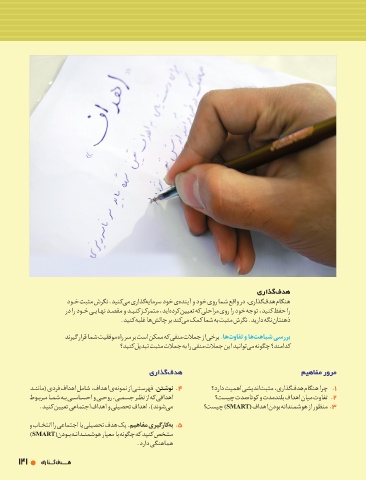 « اهداف »
هدف‌گذاری
هنگام هدف‌گذاری، در واقع شما روی خود و آینده‌ی خود سرمایه‌گذاری می‌کنید. نگرش مثبت خود
را حفظ کنید، توجه خود را روی مراحلی که تعیین کرده‌اید، متمرکز کنید و مقصد نهایی خود را در
ذهنتان نگه دارید. نگرش مثبت به شما کمک می‌کند بر چالش‌ها غلبه کنید.
بررسی شباهت‌ها و تفاوت‌ها. برخی از جملات منفی که ممکن است بر سر راه موفقیت شما قرار گیرند
کدامند؟ چگونه می‌توانید این جملات منفی را به جملات مثبت تبدیل کنید؟
مرور مفاهیم
۱. چرا هنگام هدف‌گذاری، مثبت‌اندیشی اهمیت دارد؟
۲. تفاوت میان اهداف بلندمدت و کوتاه‌مدت چیست؟
۳. منظور از هوشمندانه بودن اهداف (SMART) چیست؟
هدف‌گذاری
۴. نوشتن. فهرستی از نمونه‌ی اهداف، شامل اهداف فردی (مانند
اهدافی که از نظر جسمی، روحی و احساسی به شما مربوط
می‌شوند)، اهداف تحصیلی و اهداف اجتماعی تعیین کنید.
۵. به‌کارگیری مفاهیم. یک هدف تحصیلی یا اجتماعی را انتخاب و
مشخص کنید که چگونه با معیار هوشمندانه بودن (SMART)
هماهنگی دارد.
هدف‌گذاری ● ۱۴۱